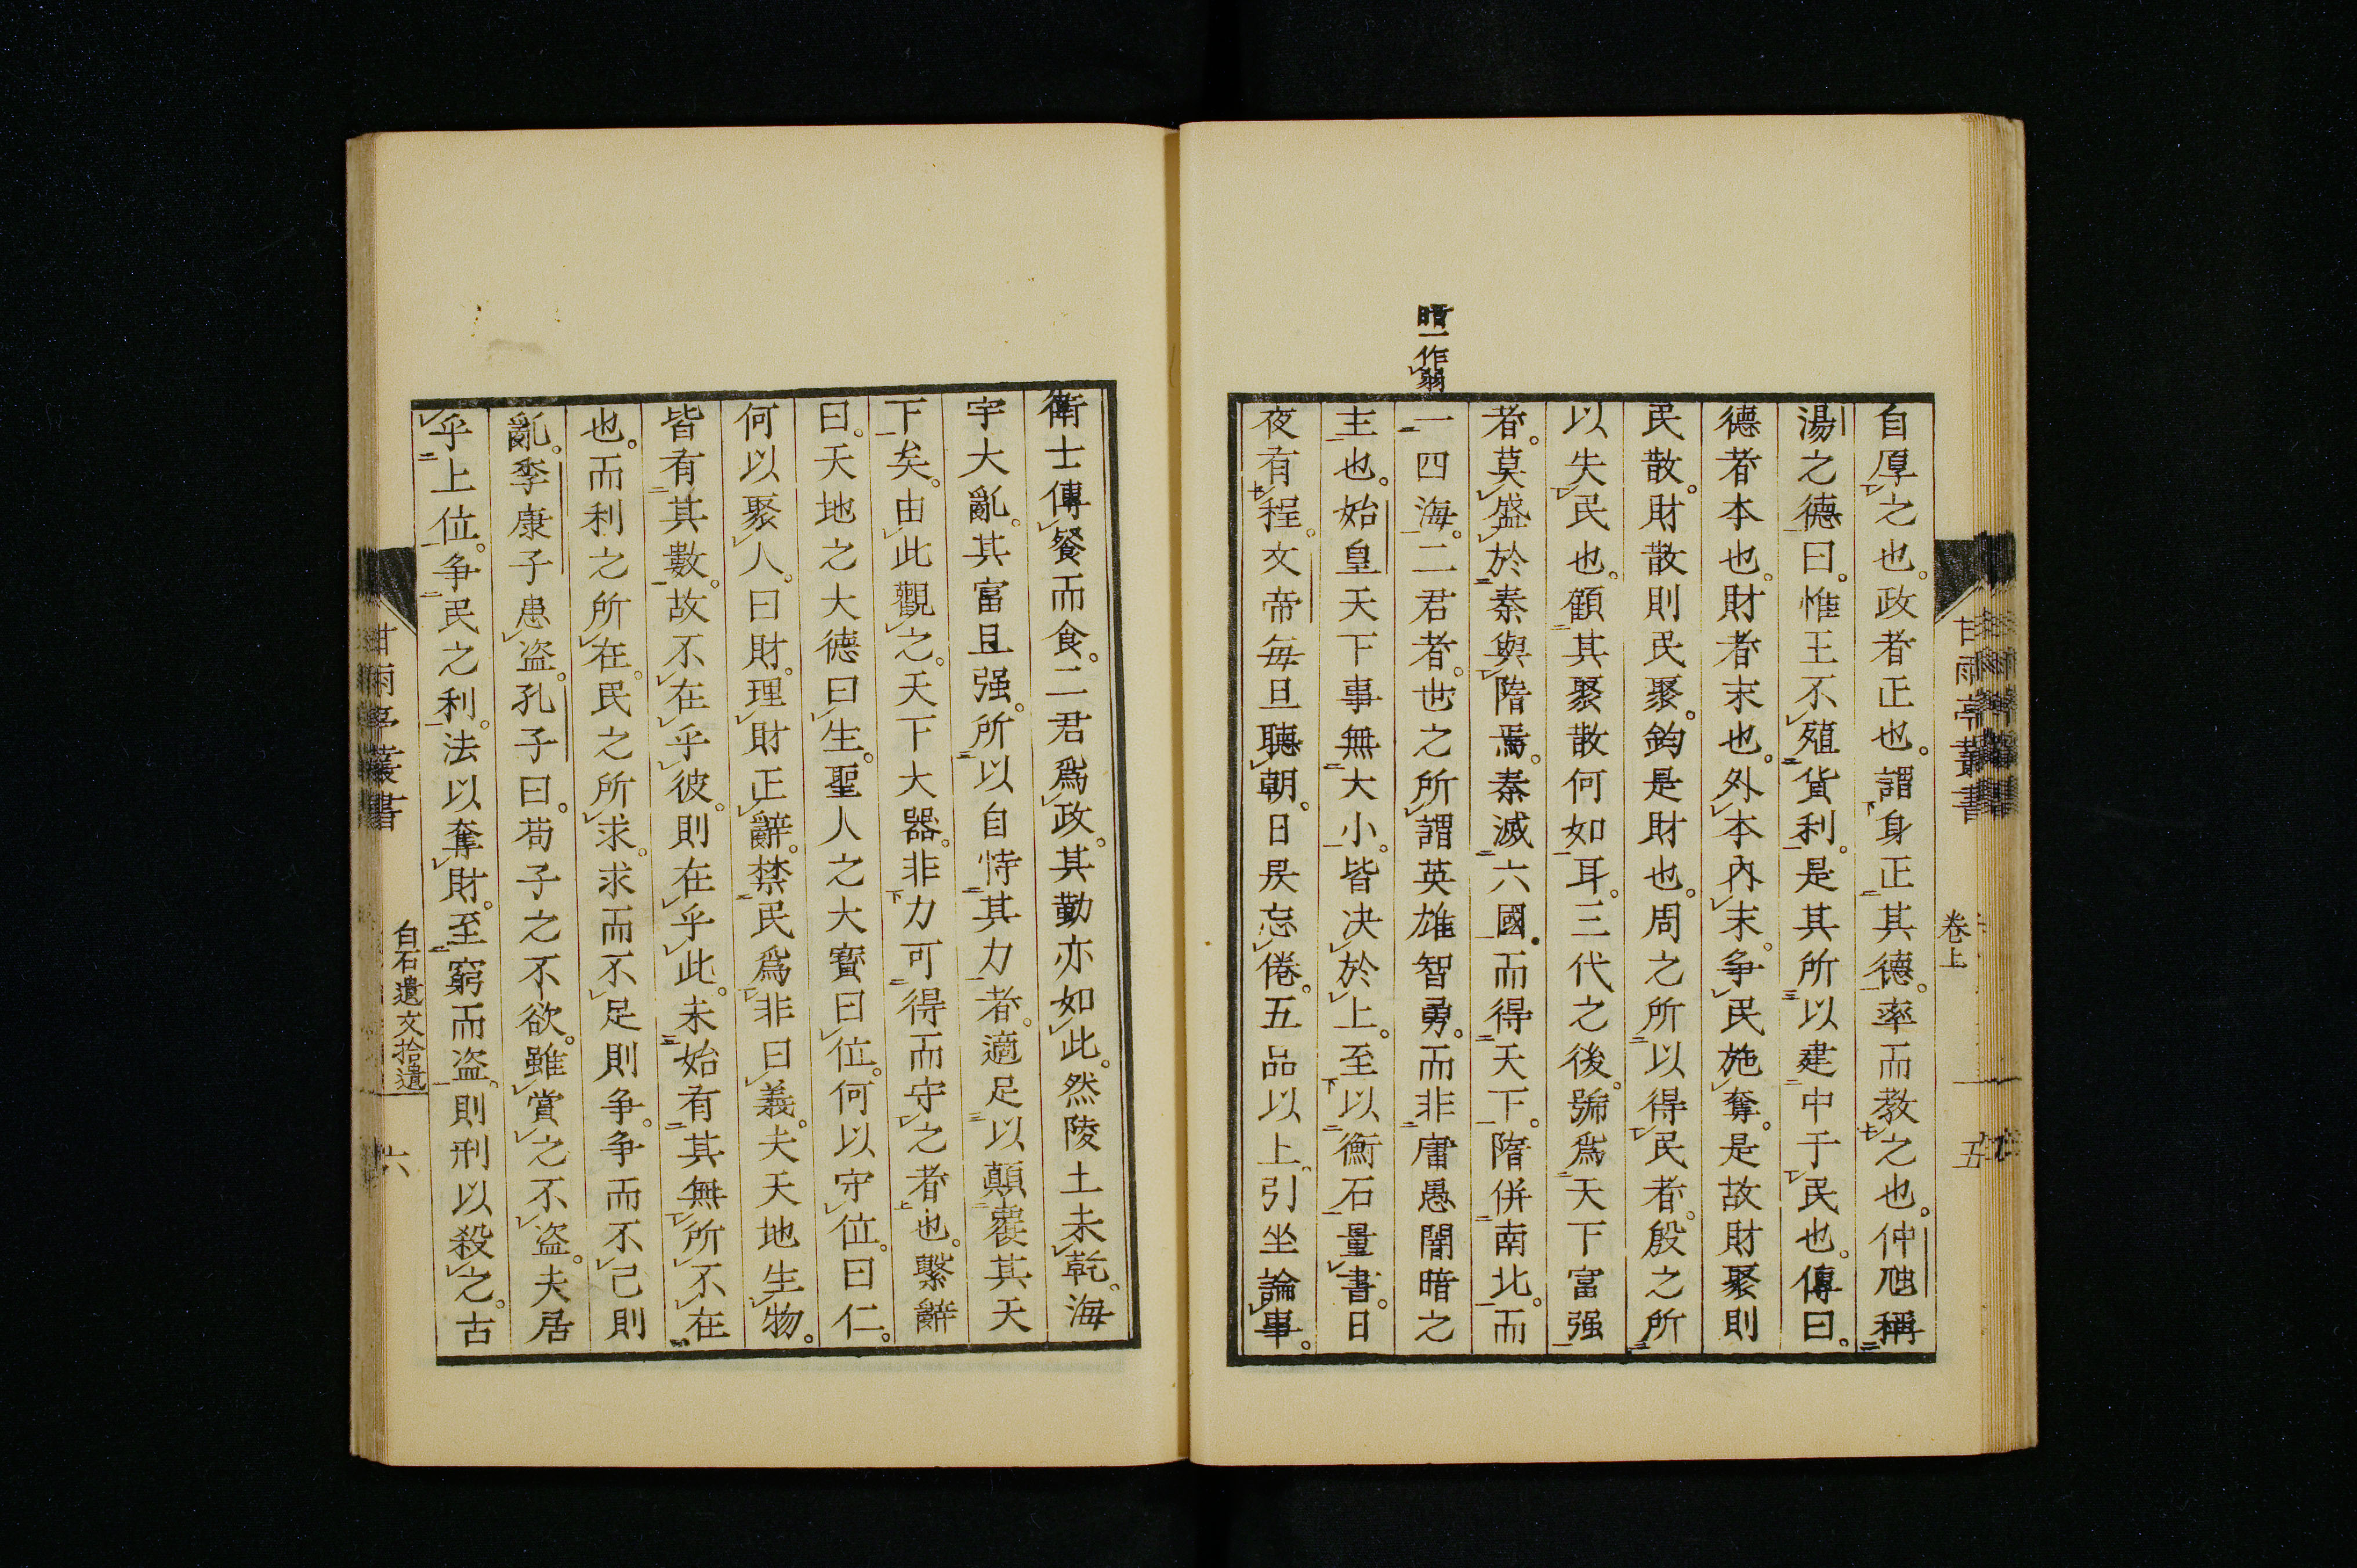 甘雨亭叢書
卷上
五
自厚之也。政者正也。謂身正其德。率而教之也。仲虺稱
湯之德曰。惟王不殖貨利。是其所以建中于民也。傳曰。
德者本也。財者末也。外本內末。爭民施奪。是故財聚則
民散。財散則民聚。鈞是財也。周之所以得民者。殷之所
以失民也。顧其聚散何如耳。三代之後。號爲天下富强
者。莫盛於秦與隋焉。秦滅六國。而得天下。隋併南北。而
一四海。二君者。世之所謂英雄智勇。而非庸愚闇暗之
主也。始皇天下事無大小。皆决於上。至以衡石量書。日
夜有程。文帝每旦聽朝。日昃忘倦。五品以上。引坐論事。
暗一作弱
衛士傳餐而食。二君爲政。其勤亦如此。然陵土未乾。海
宇大亂。其富且强。所以自恃其力者。適足以顛覆其天
下矣。由此觀之。天下大器。非力可得而守之者也。繫辭
曰。天地之大德曰生。聖人之大寶曰位。何以守位。曰仁。
何以聚人。曰財。理財正辭。禁民爲非曰義。夫天地生物。
皆有其數。故不在乎彼。則在乎此。未始有其無所不在
也。而利之所在。民之所求。求而不足則爭。爭而不已則
亂。季康子患盜。孔子曰。苟子之不欲。雖賞之不盜。夫居
乎上位。爭民之利。法以奪財。至窮而盜。則刑以殺之。古
甘雨亭叢書
白石遺文拾遺
六